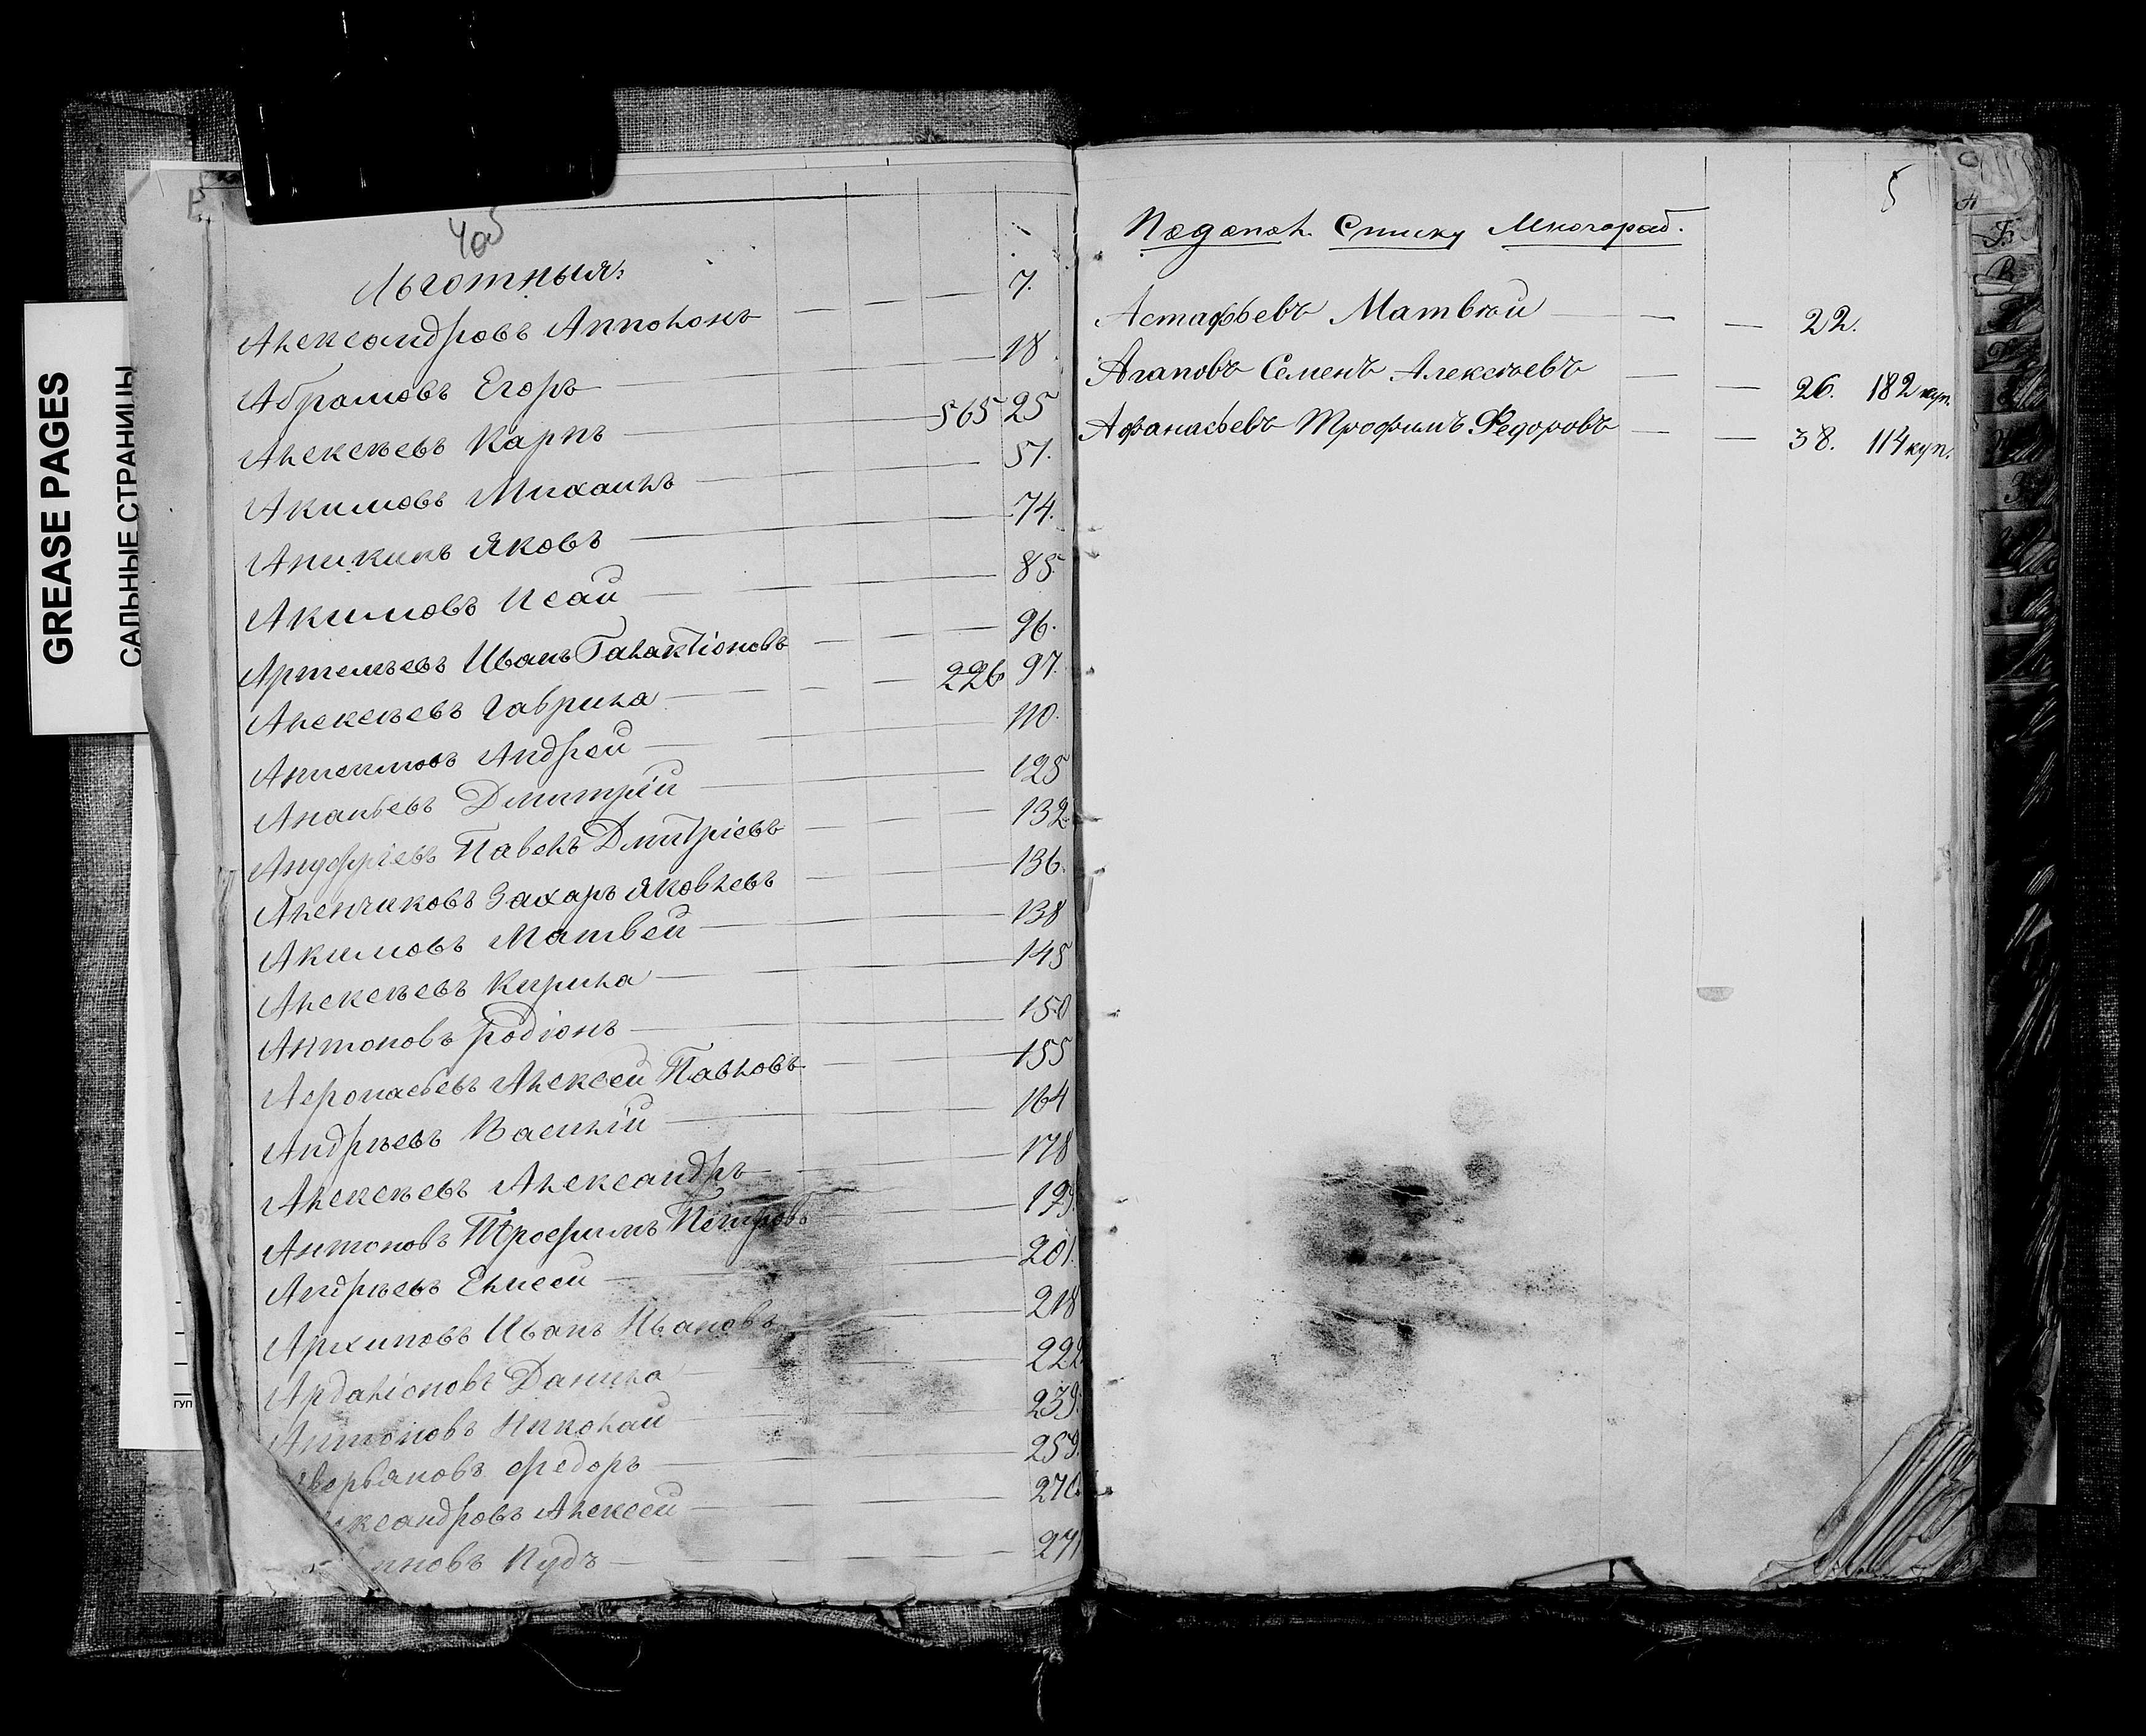 GREASE PAGES
САЛЬНЫЕ СТРАНИЦЫ
4об
Льготныя:
Александровъ Апполонъ 7.
Абрамовъ Егоръ 18
Алексѣевъ Карпъ 565 25
Акимовъ Михаилъ 51.
Аникинъ Яковъ 74.
Акимовъ Исай 85
Артемьевъ Иванъ Галактіоновъ 96.
Алексѣевъ Гаврила 226 97.
Анисимовъ Андрей 110.
Ананьевъ Дмитрій 125
Ануфріевъ Павелъ Дмитріевъ 132
Аленчиковъ Захаръ Яковлевъ 136.
Акимовъ Матвей 138
Алексѣевъ Кирила 145
Антоновъ Родіонъ 150
Афонасьевъ Алексей Павловъ 155
Андрѣевъ Василій 164
Алексѣевъ Александръ 178
Антоновъ Трофимъ Петровъ
Андрѣевъ Елисей 201.
Архиповъ Иванъ Ивановъ 218
Ардаліоновъ Данила 222
Антоновъ Николай 239.
Аверьяновъ Федоръ 259.
Александровъ Алексей 270.
Пудъ 271
5
Астафьевъ Матвѣй 22.
Агаповъ Семенъ Алексѣевъ 26. 182 куп.
Афанасьевъ Трофимъ Федоровъ 38. 114 куп.